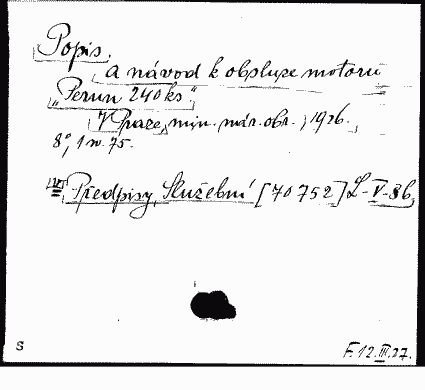 Popis
a návod k obsluze motoru
„Perun 240 ks“
V Praze, min. nár. obr., 1926.
8°, 1 w. 75.
= Předpisy, Služební [70752] L-V-86,
S
F. 12. III. 27.